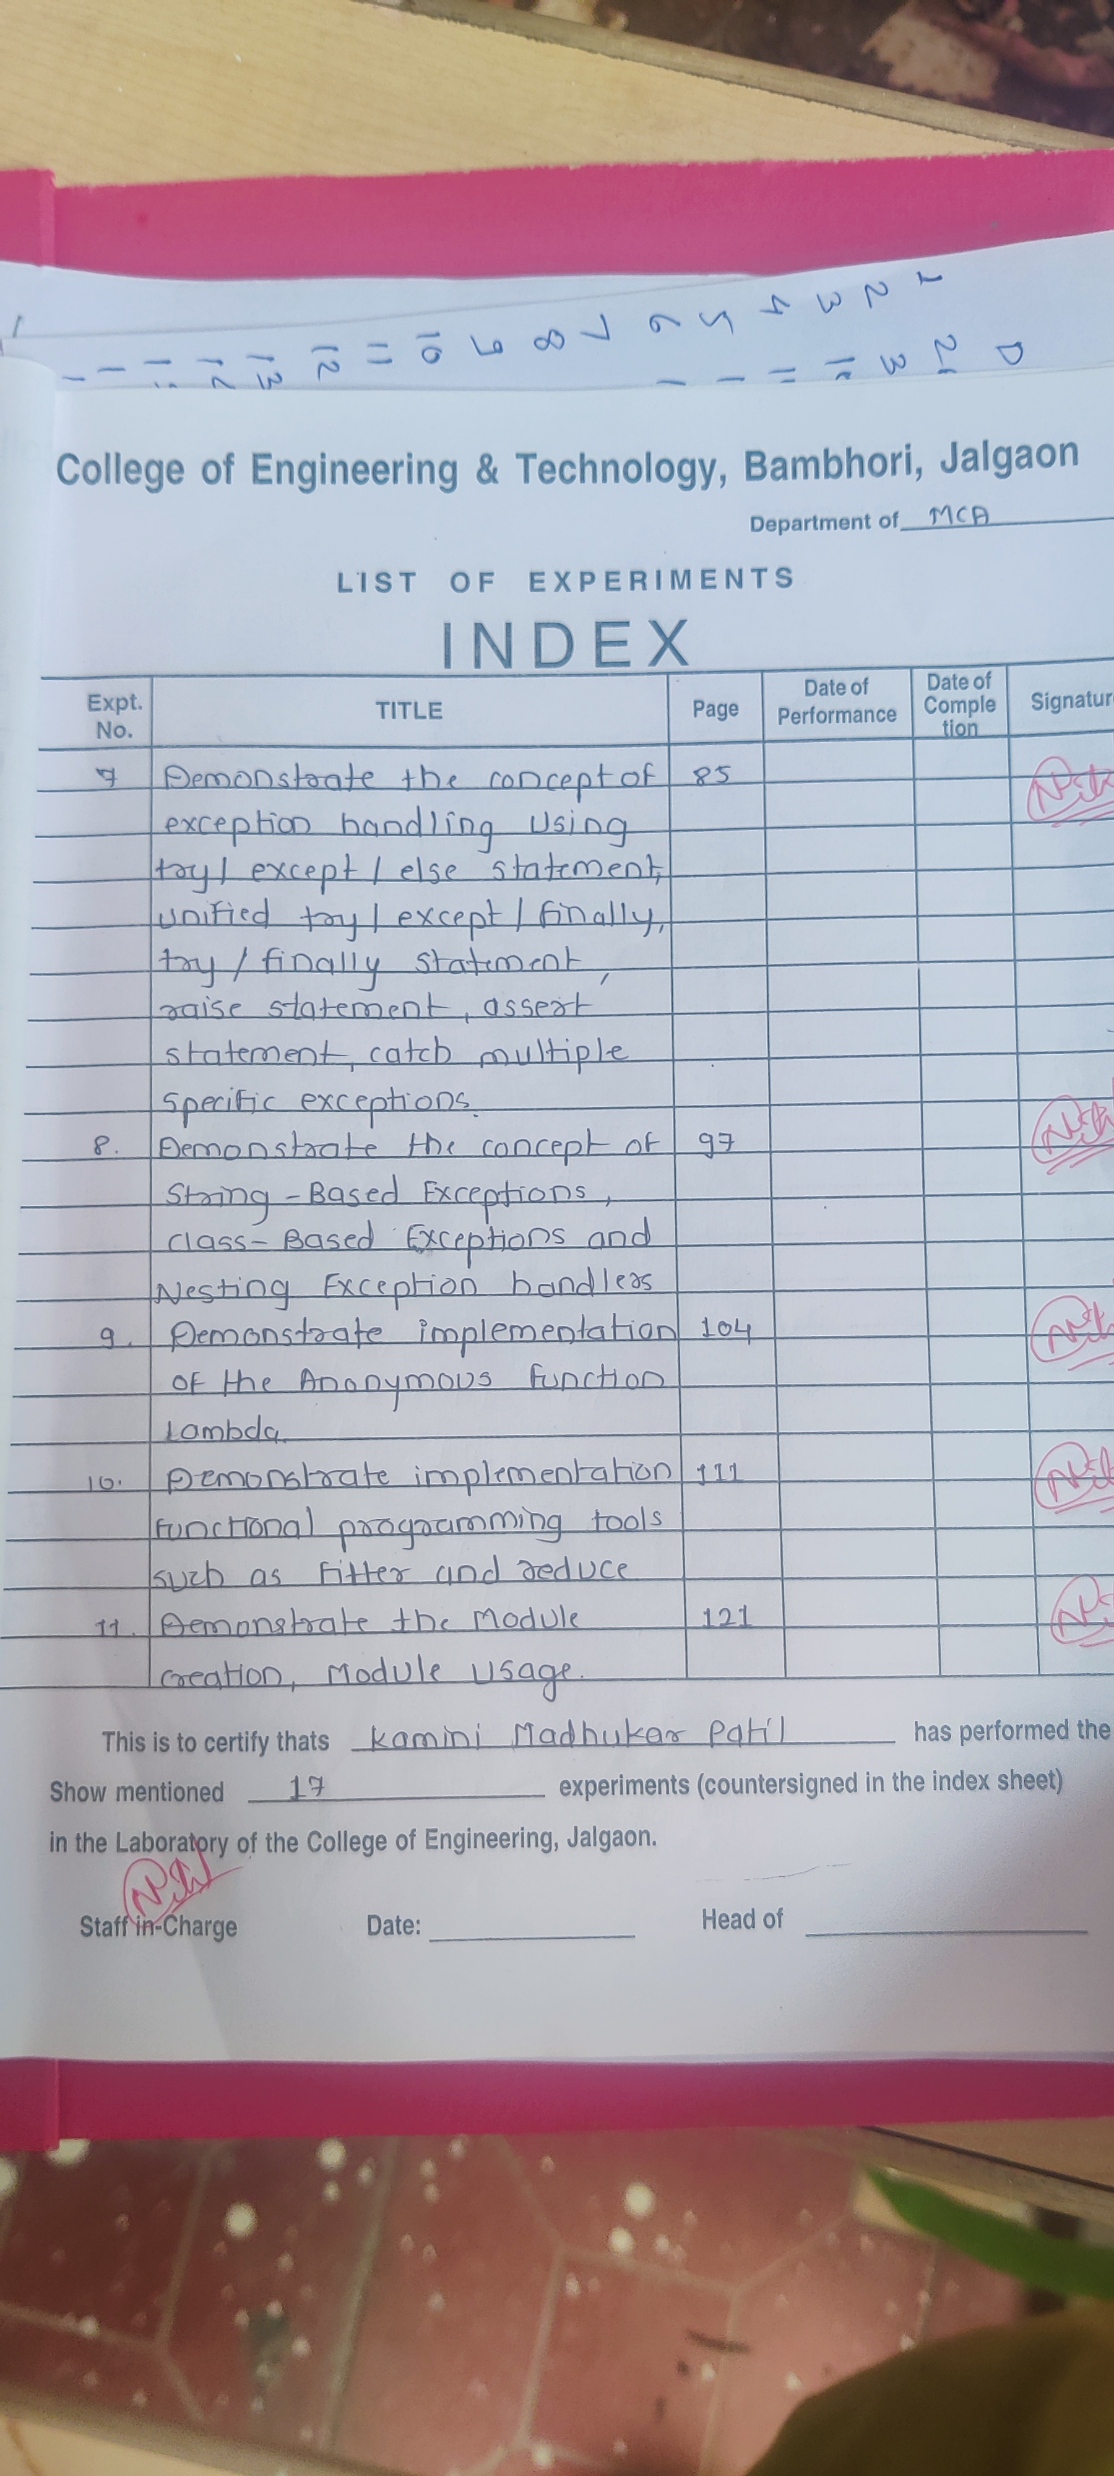 College of Engineering & Technology, Bambhori, Jalgaon
Department of MCA
LIST OF EXPERIMENTS
INDEX
Expt. No. TITLE Page Date of Performance Date of Comple tion Signatur
7 Demonstrate the concept of 85
exception handling using
try / except / else statement,
unified try / except / finally,
try / finally statement,
raise statement, assert
statement, catch multiple
specific exceptions.
8. Demonstrate the concept of 97
String-Based Exceptions,
class-Based Exceptions and
Nesting Exception handlers
9. Demonstrate implementation 104
of the Anonymous Function
Lambda.
10. Demonstrate implementation 111
functional programming tools
such as Fitter and reduce
11. Demonstrate the Module 121
creation, Module Usage.
This is to certify thats Kamini Madhukar Patil has performed the
Show mentioned 17 experiments (countersigned in the index sheet)
in the Laboratory of the College of Engineering, Jalgaon.
Staff in-Charge Date: Head of